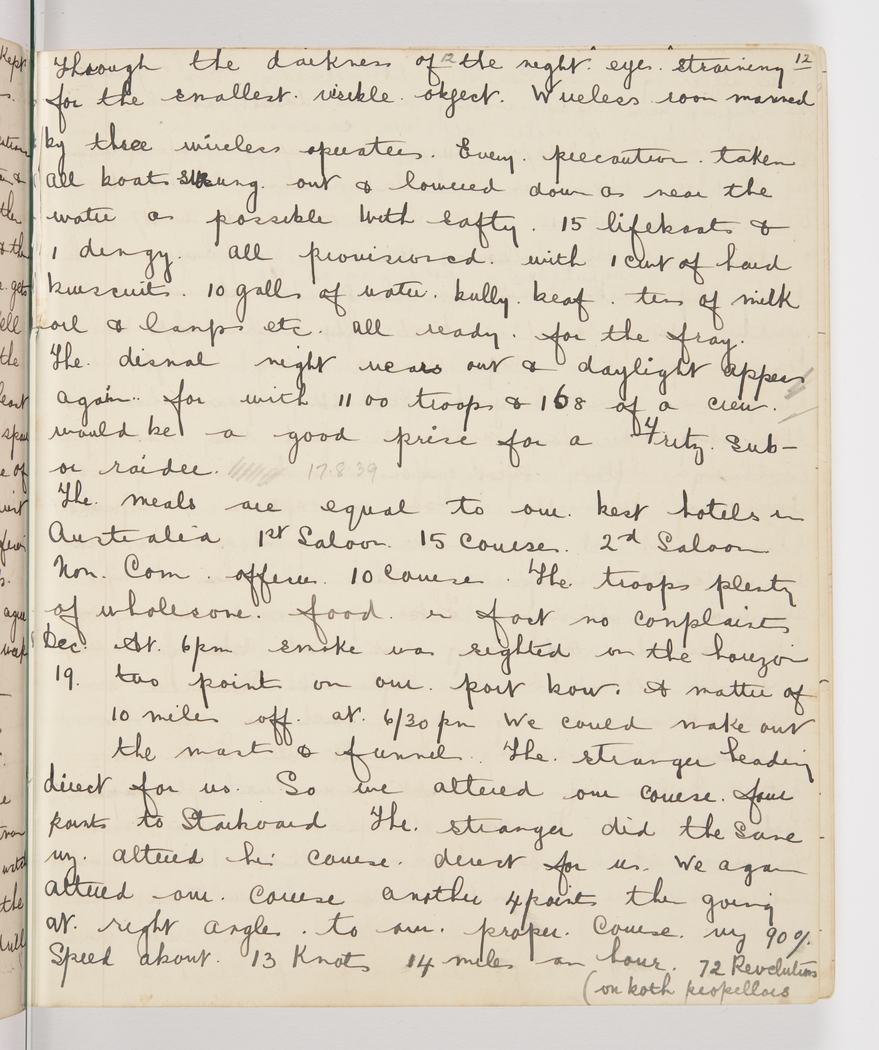 12
Through the darkness of the night. eyes. straining 12
for the smallest. visible. object. Wireless room manned
by three wireless operators. Every. precaution. taken
all boats swung. out & lowered down as near the
water as possible with safty. 15 lifeboats &
1 dingy. all provisioned. with 1 cwt of hard
buiscuits. 10 galls of water. bully. beaf. tins of milk
oil & lamps etc. all ready. for the fray.
The. dismal night wears out & daylight appears
again. for with 1100 troops & 168 of a crew.
would be a good prise for a Fritz. Sub-
or raider. 17.8.39
The. meals are equal to our. best hotels in
Australia 1st Saloon. 15 Course. 2nd Saloon
Non. Com. officers. 10 Course. The. troops plenty
of wholesome. food. in fact no complaints
Dec. At. 6pm smoke was sighted on the horizon
19. two points on our. port bow. A matter of
10 miles off. at. 6/30 pm We could make out
the mast & funnel. The. stranger heading
direct for us. So we altered our course. four
points to Starboard The. stranger did the same
altered his course. direct for us. We again
altered our. course another 4 points then going
at. right angles. to our. proper. Course. 90%.
Speed about. 13 Knots 14 miles an hour. 72 Revolutions
(on both propellors